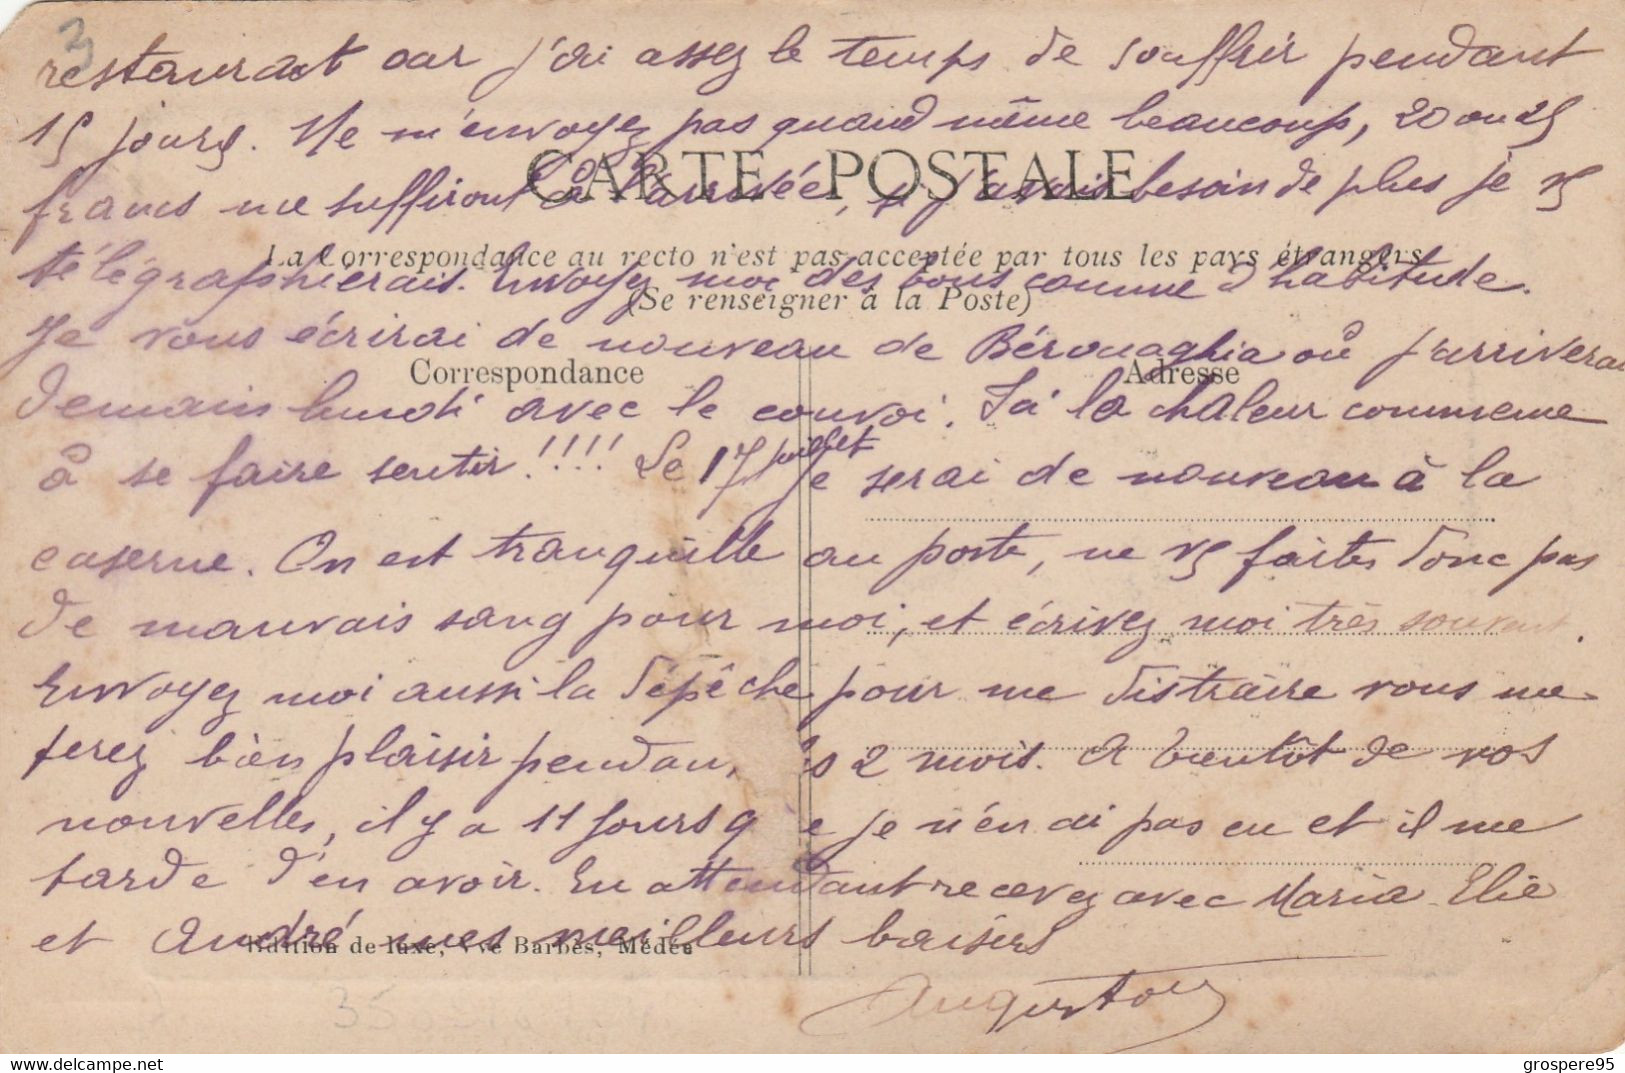 3
restaurant car j'ai assez le temps de souffrir pendant
15 jours. Ne m'envoyez pas quand même beaucoup, 20 ou 25
CARTE POSTALE
francs me suffiront à l'arrivée, si j'avais besoin de plus je vs
La Correspondance au recto n'est pas acceptée par tous les pays étrangers
télégraphierais. Envoyez moi des bons comme d'habitude.
(Se renseigner à la Poste)
Je vous écrirai de nouveau de Bérouaghia où j'arriverai
Correspondance
Adresse
demain lundi avec le convoi. Ici la chaleur commence
à se faire sentir!!!! Le 17 juillet je serai de nouveau à la
caserne. On est tranquille au poste, ne vs faites donc pas
de mauvais sang pour moi, et écrivez moi très souvent.
Envoyez moi aussi la Dépêche pour me distraire vous me
ferez bien plaisir pendan, s 2 mois. A bientôt de vos
nouvelles, il y a 11 jours q e je n'en ai pas eu et il me
tarde d'en avoir. En attendant recevez avec Maria Elie
et André mes meilleurs baisers
Edition de luxe, Vve Barbès, Médéa
Augustou
35
grospere95